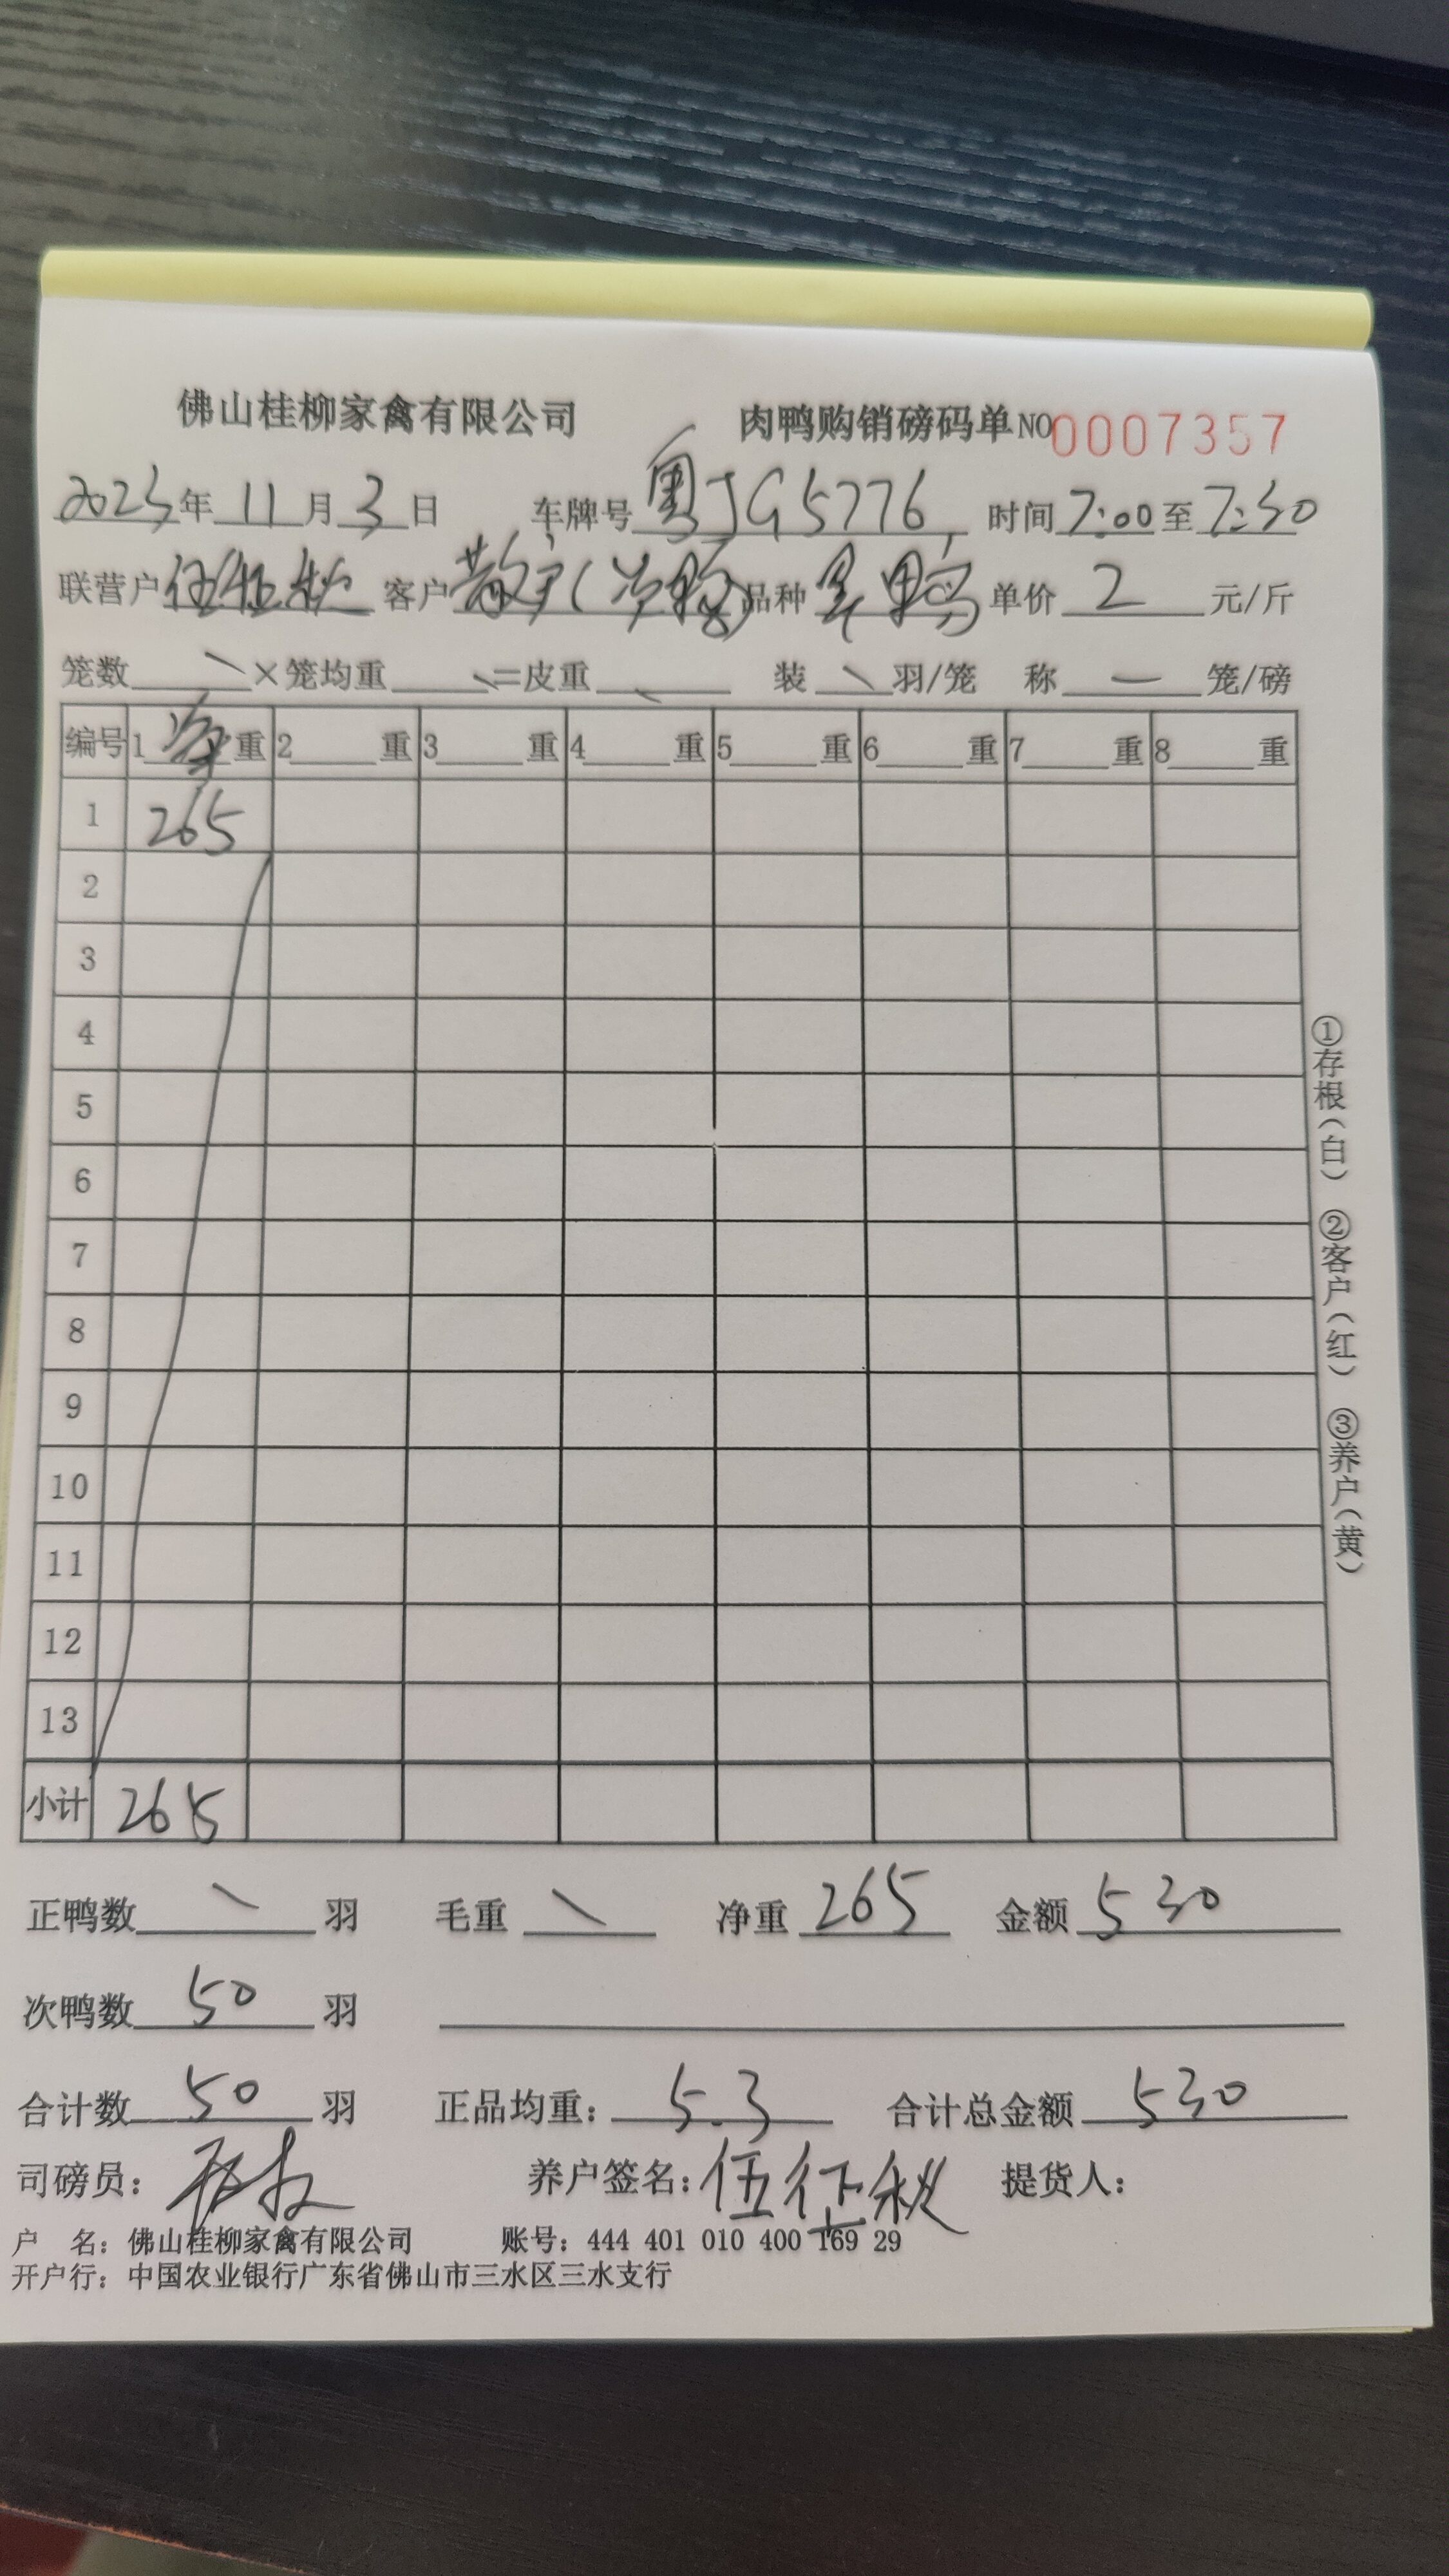 佛山桂柳家禽有限公司 肉鸭购销磅码单 NO 0007357
2023年11月3日 车牌号 粤JG5776 时间 7:00 至 7:30
联营户 伍征秋 客户 散户( 品种 鸭 单价 2 元/斤
笼数 \ ×笼均重 \ =皮重 \ 装 \ 羽/笼 称 — 笼/磅
编号 1 净 重 2 重 3 重 4 重 5 重 6 重 7 重 8 重
1 265
2
3
4
5
6
7
8
9
10
11
12
13
小计 265
正鸭数 \ 羽 毛重 \ 净重 265 金额 530
次鸭数 50 羽
合计数 50 羽 正品均重: 5.3 合计总金额 530
司磅员: 养户签名: 伍征秋 提货人:
户 名: 佛山桂柳家禽有限公司 账号: 444 401 010 400 169 29
开户行: 中国农业银行广东省佛山市三水区三水支行
①存根(白) ②客户(红) ③养户(黄)